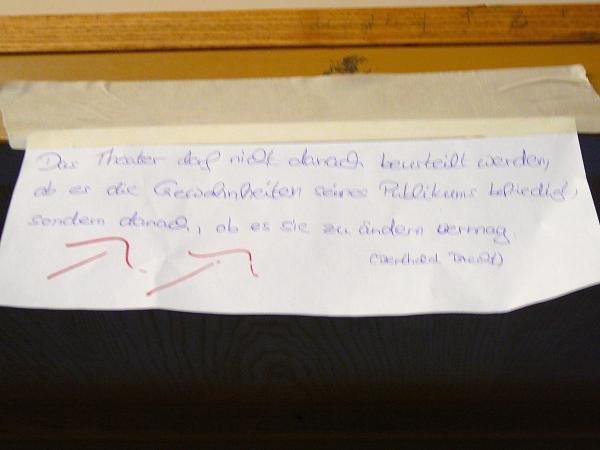 Das Theater darf nicht danach beurteilt werden,
ob es die Gewohnheiten seines Publikums befriedigt,
sondern danach, ob es sie zu ändern vermag.
(Berthold Brecht)